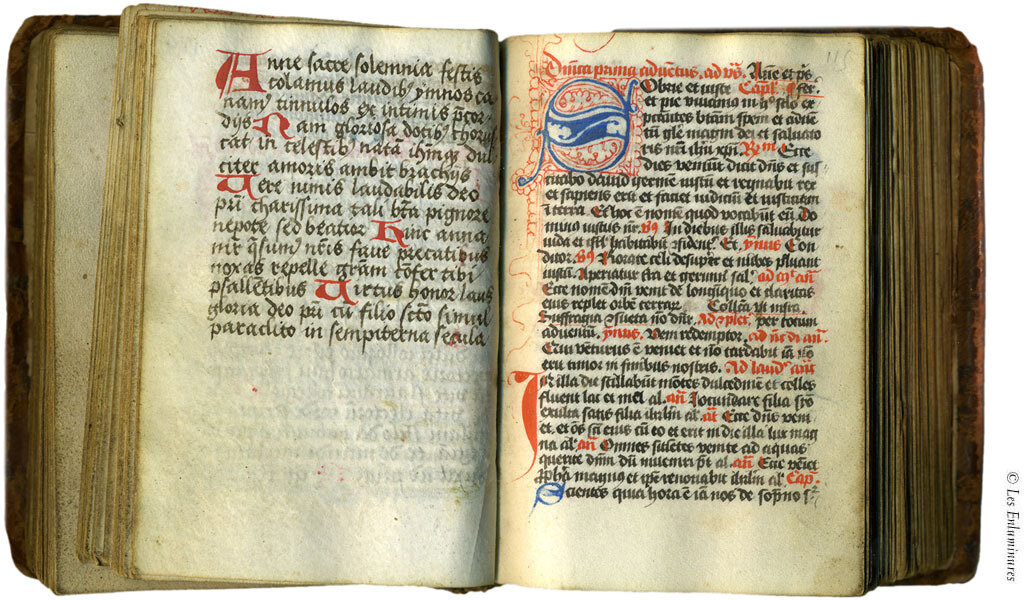 Anne sacre solemnia festis
colamus laudibꝰ ymnos ca
nam9 tinnulos ex intimis p̃cor
dijs Nam gloriosa dotibꝰ chorus
cat in celestibꝰ natā ih̃mqꝫ dul
citer amoris ambit brachijs
Vere nimis laudabilis deo
pr̃i charissima tali bt̃a pignore
nepote sed beatior Hinc anna
nr̃is faue precatibus
noxas repelle gr̃am cõfer tibi
psallētibus Virtus honor laus
gloria deo pr̃i cū filio sc̃to simul
paraclito in sempiterna secula
115
Dñica prima aduētus, ad vs̄. Añe et p̄s
Sobrie et iuste Capl̃.
et pie viuamus in seculo ex
pectātes btām spem et aduē
tū gl̃e magni dei et saluato
ris nr̃i ih̃u xp̃i Ecce
dies veniūt dicit dñs et sus
citabo dauid germē iustū et regnabit rex
et sapiens erit et faciet iudiciū et iusticiam
ī terra. Et hoc ē nomē quod vocabūt eū Do
minus iustus nr̃. In diebus illis saluabitur
iuda et isr̃l habitabit Et. ymnus Con
ditor. Rorate celi desuper et nubes pluant
iustū Aperiatur t̃ra et germinet sal̃. ad
Ecce nomē dñi venit de longīquo et claritas
eius replet orbē terrarum. Collc̃a vt infra.
Suffragia ↄsueta nō dñr. Ad ↄplet. per totum
aduentū. ymnus. Veni redemptor.
Ecce venturus ē veniet et nō tardabit iā nō
erit timor in finibus nostris. Ad laud̃. añ
In illa die stillabūt mōtes dulcedinē et colles
fluent lac et mel al. añ Iocundare filia syō
exulta satis filia ihrl̃m al. añ Ecce dñs veni
et. et oēs sc̃i eius cū eo et erit in die illa lux mag
na al. añ Omnes sicientes venite ad aquas
querite dñm dū inueniri pt̃ al. añ Ecce veniet
ꝓph̃a magnus et ip̃e renouabit ihrl̃m al. Cap̃.
Scientes quia hora ē iā nos de sōpno
© Les Enluminures